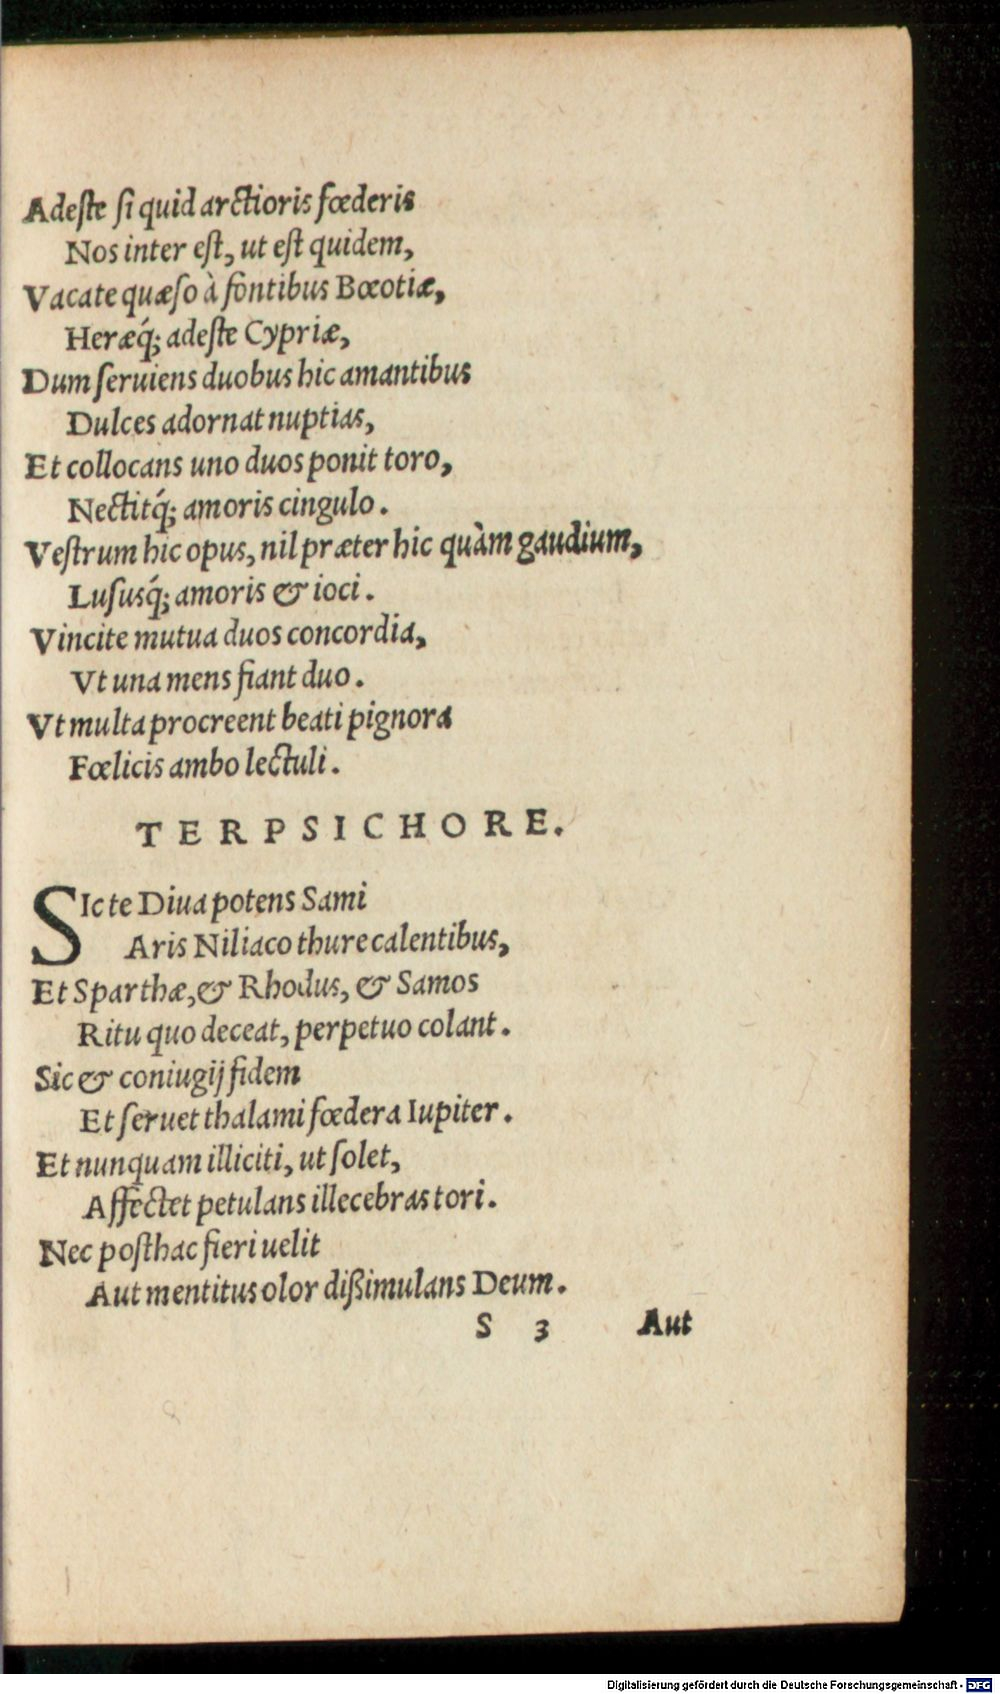 Adeſte ſi quid arctioris fœderis
Nos inter eſt, ut eſt quidem,
Vacate quæſo à fontibus Bœotiæ,
Heræq́; adeſte Cypriæ,
Dum ſeruiens duobus hic amantibus
Dulces adornat nuptias,
Et collocans uno duos ponit toro,
Nectitq́; amoris cingulo.
Veſtrum hic opus, nil præter hic quàm gaudium,
Luſusq́; amoris & ioci.
Vincite mutua duos concordia,
Vt una mens fiant duo.
Vt multa procreent beati pignora
Fœlicis ambo lectuli.
TERPSICHORE.
SIc te Diua potens Sami
Aris Niliaco thure calentibus,
Et Sparthæ, & Rhodus, & Samos
Ritu quo deceat, perpetuo colant.
Sic & coniugij fidem
Et ſeruet thalami fœdera Iupiter.
Et nunquam illiciti, ut ſolet,
Affectet petulans illecebras tori.
Nec poſthac fieri uelit
Aut mentitus olor dißimulans Deum.
S 3 Aut
Digitalisierung gefördert durch die Deutsche Forschungsgemeinschaft - DFG